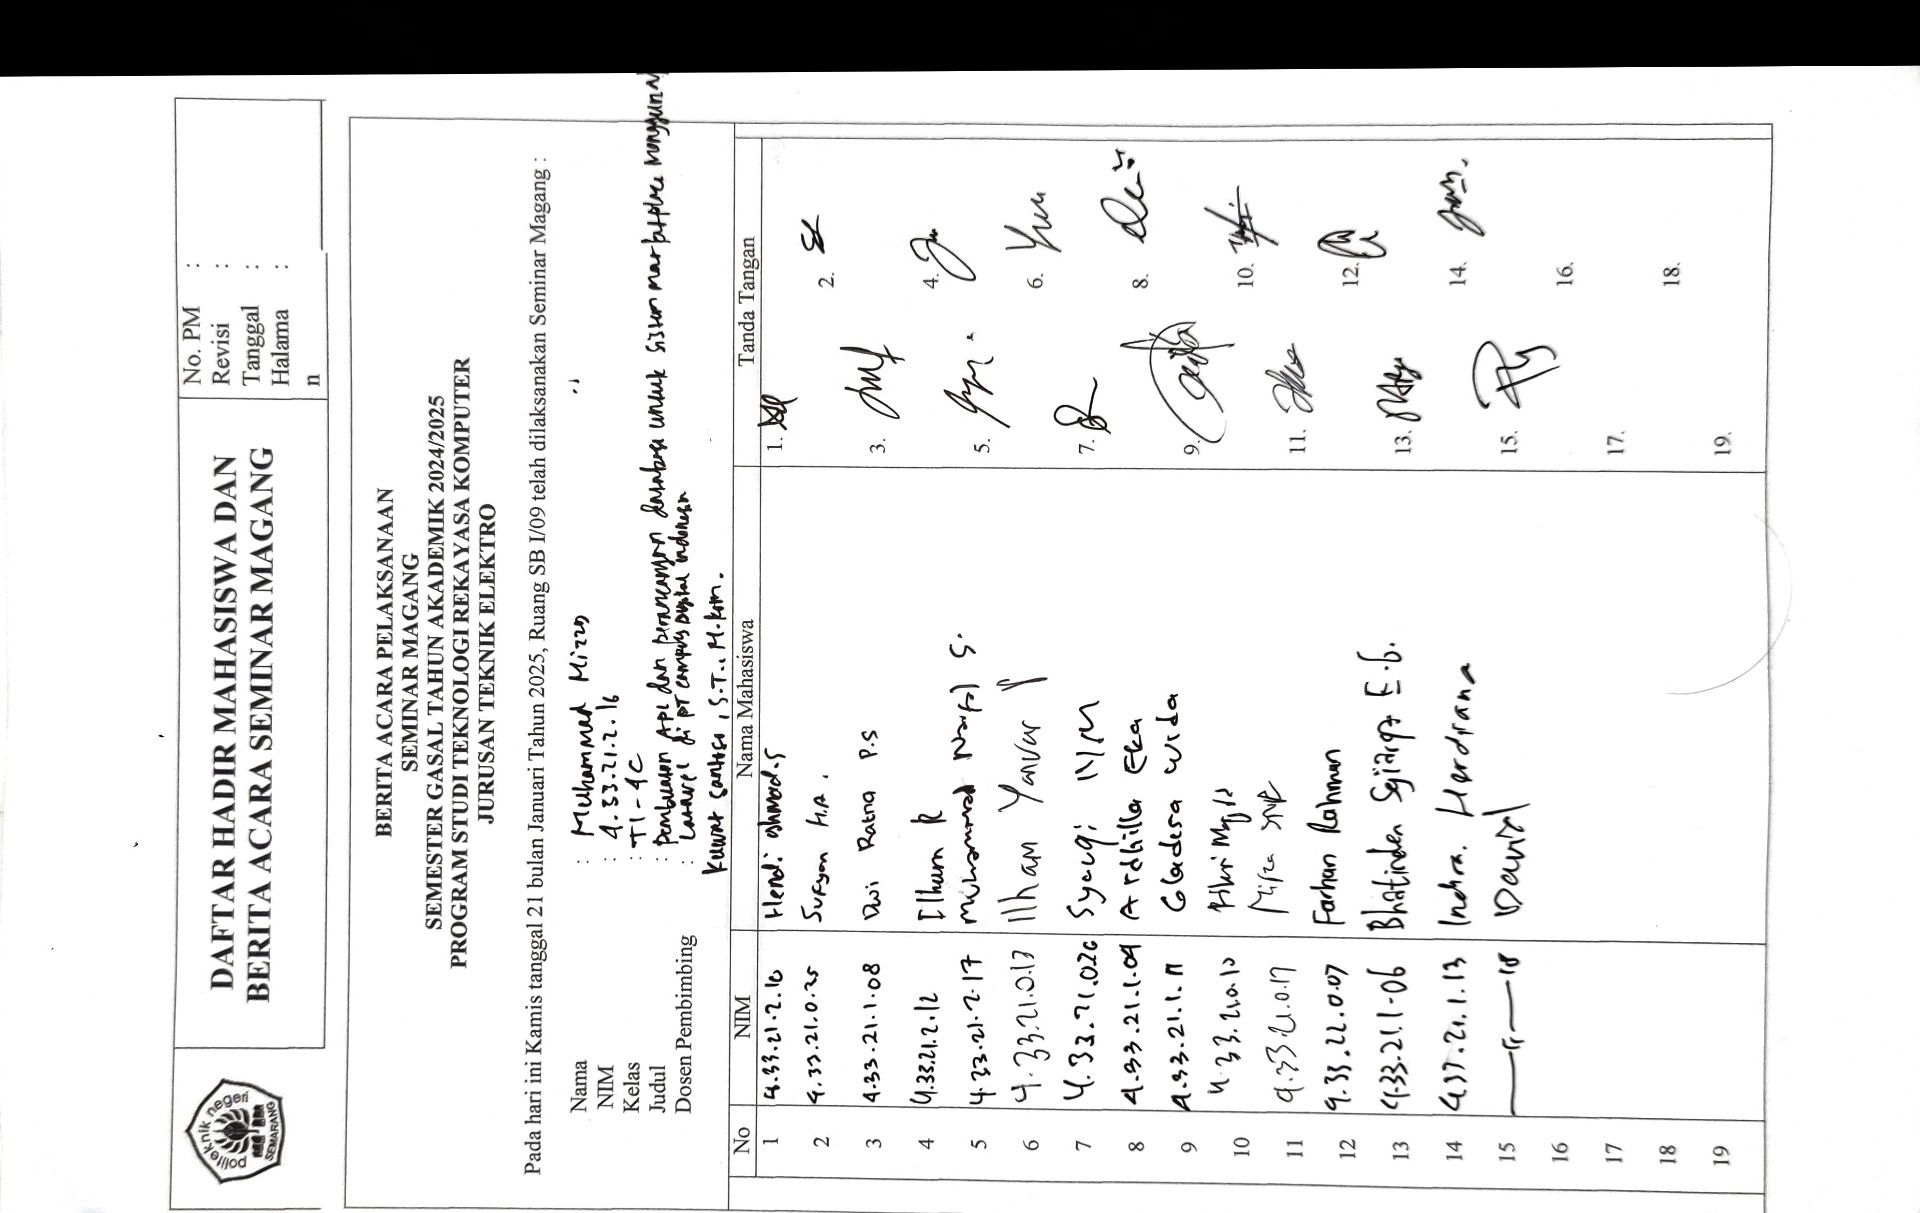 politeknik negeri
SEMARANG
DAFTAR HADIR MAHASISWA DAN
BERITA ACARA SEMINAR MAGANG
No. PM :
Revisi :
Tanggal :
Halama :
n
BERITA ACARA PELAKSANAAN
SEMINAR MAGANG
SEMESTER GASAL TAHUN AKADEMIK 2024/2025
PROGRAM STUDI TEKNOLOGI REKAYASA KOMPUTER
JURUSAN TEKNIK ELEKTRO
Pada hari ini Kamis tanggal 21 bulan Januari Tahun 2025, Ruang SB I/09 telah dilaksanakan Seminar Magang :
Nama : Muhammad Mizzo
NIM : 4.33.21.2.16
Kelas : TI-4C
Judul : pembuatan API dan perancangan database untuk sistem marketplace
Laravel di PT campus Digital indonesia
Dosen Pembimbing : Kuwat Santoso, S.T., M.Kom.
No NIM Nama Mahasiswa Tanda Tangan
1 4.33.21.2.10 Hendi Ahmad.S 1.
2 4.33.21.0.25 Sufyan H.A. 2.
3 4.33.21.1.08 Dwi Ratna P.S 3.
4 4.33.21.2.12 Ilham R 4.
5 4.33.21.2.17 Muhammad Naufal S. 5.
6 4.33.21.0.13 Ilham Yanuar 6.
7 4.33.21.0.26 Syauqi 7.
8 4.33.21.1.04 Ardhilla Eka 8.
9 4.33.21.1.11 Gladesa Wida 9.
10 4.33.21.0.10 Fikri 10.
11 4.33.21.0.17 Mirza 11.
12 4.33.22.0.07 Farhan Rahman 12.
13 4.33.21.1.06 Bhatinden E.G. 13.
14 4.37.21.1.13 Indira Herdiana 14.
15 18 David 15.
16 16.
17 17.
18 18.
19 19.